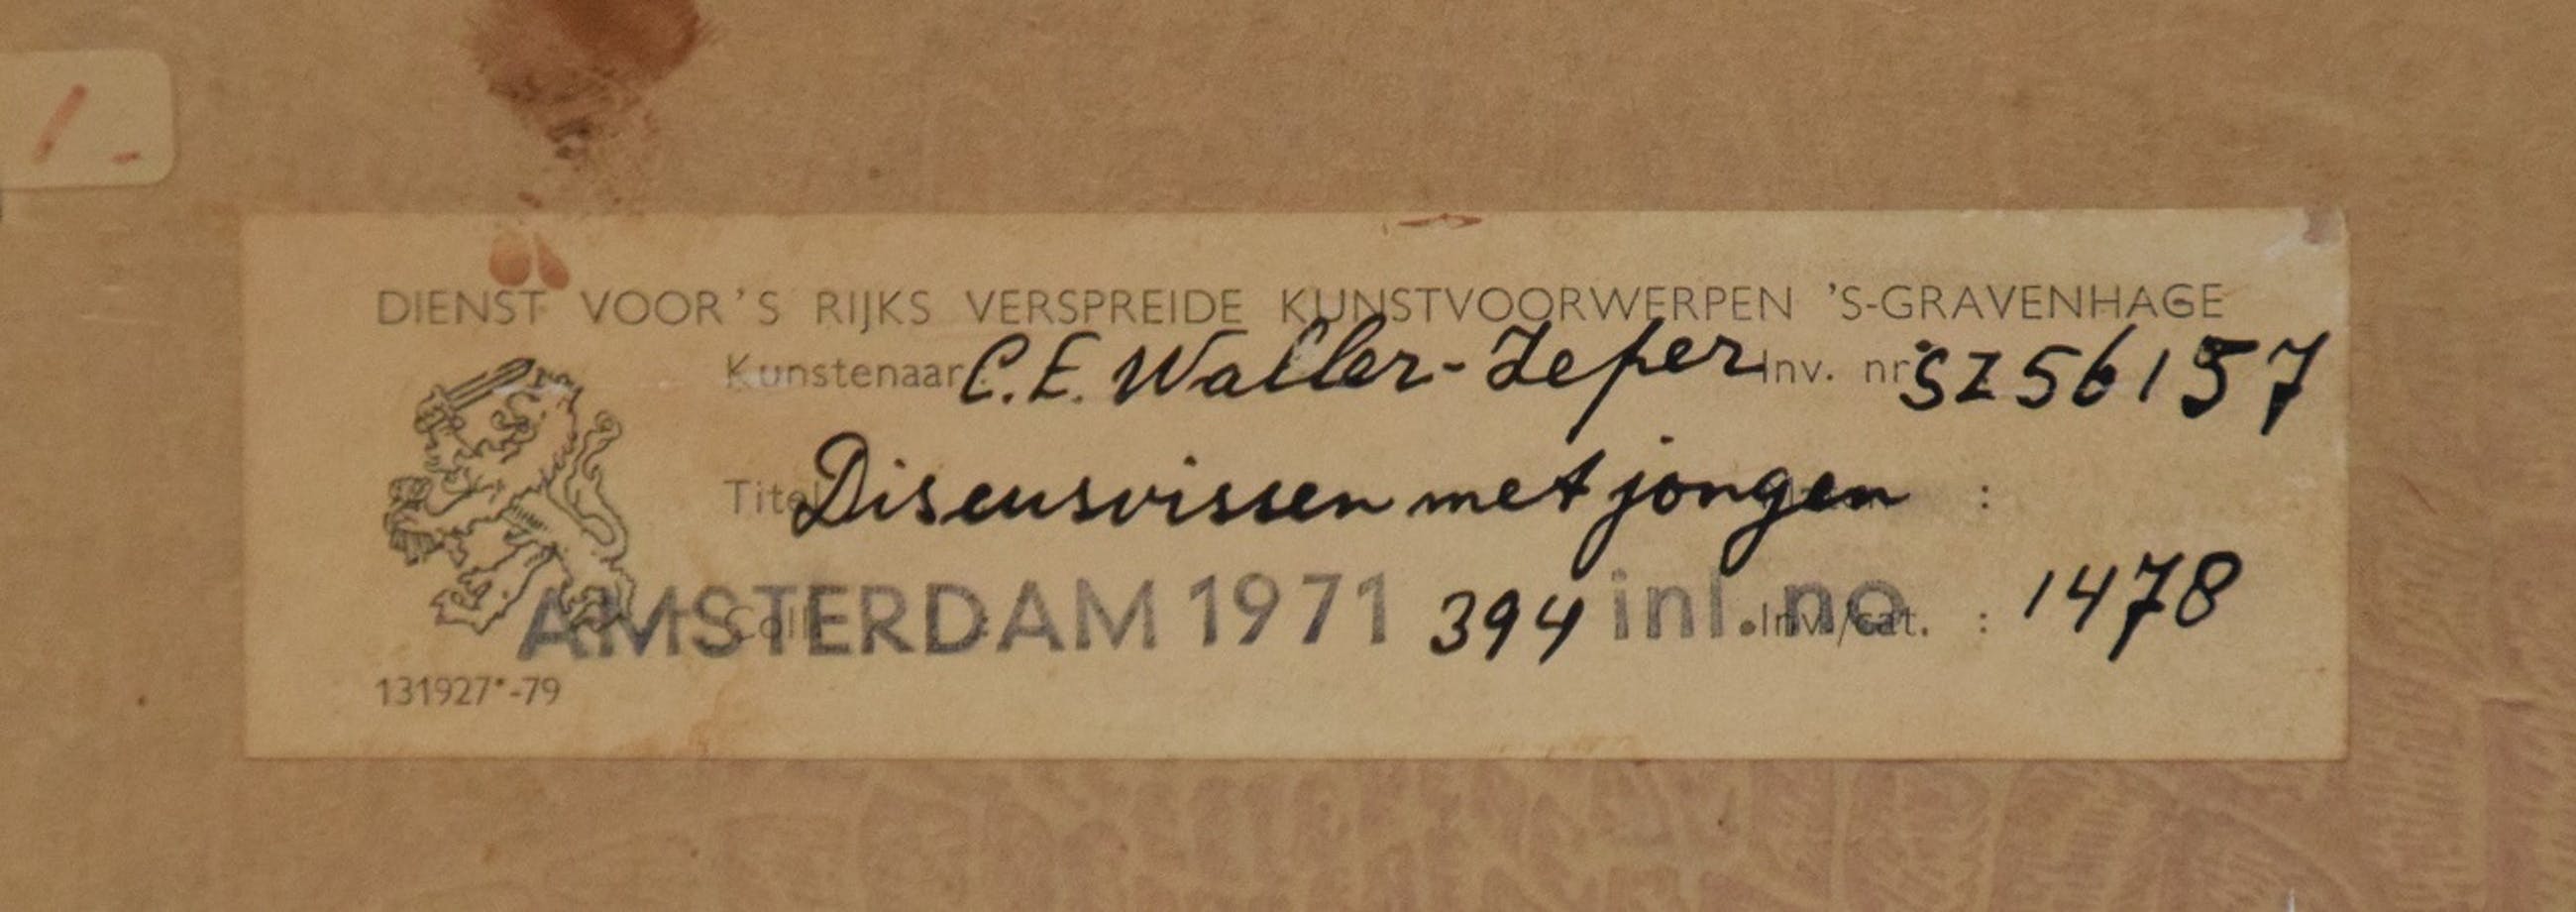 1.-
DIENST VOOR 'S RIJKS VERSPREIDE KUNSTVOORWERPEN 'S-GRAVENHAGE
Kunstenaar: C.E. Waller-Zeper Inv. nr: SZ56157
Titel Discusvissen met jongen :
AMSTERDAM 1971 394 inl.no Coll. Inv./cat. : 1478
131927*-79